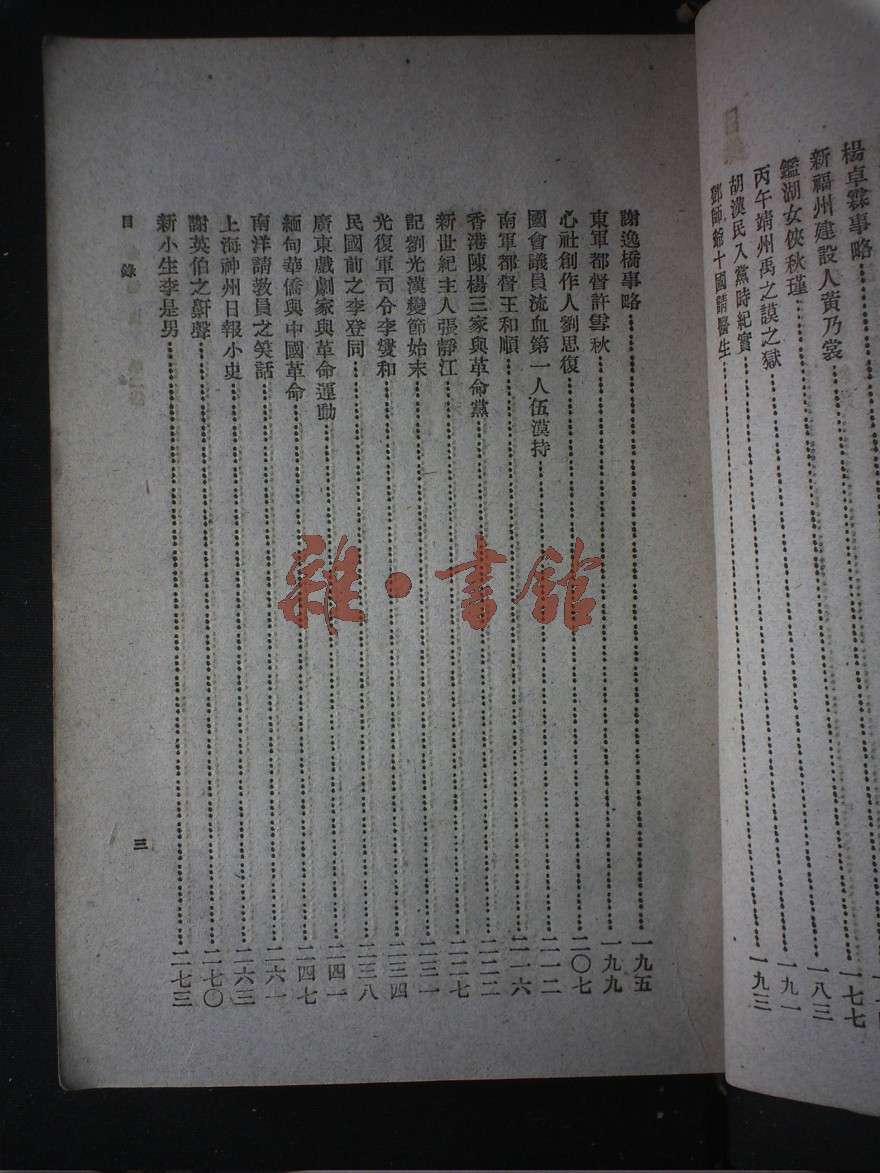 楊卓霖事略
一七七
新福州建設人黃乃裳
一八三
鑑湖女俠秋瑾
一九一
丙午靖州禹之謨之獄
一九三
胡漢民入黨時紀實
鄧師爺十國請醫生
謝逸橋事略
一九五
東軍都督許雪秋
一九九
心社創作人劉思復
二〇七
國會議員流血第一人伍漢持
二一二
南軍都督王和順
二一六
香港陳楊三家與革命黨
二二二
新世紀主人張靜江
二二七
記劉光漢變節始末
二三一
光復軍司令李燮和
二三四
民國前之李登同
二三八
廣東戲劇家與革命運動
二四一
緬甸華僑與中國革命
二四七
南洋請教員之笑話
二六一
上海神州日報小史
二六三
謝英伯之鼾聲
二七〇
新小生李是男
二七三
目錄
三
雜·書館